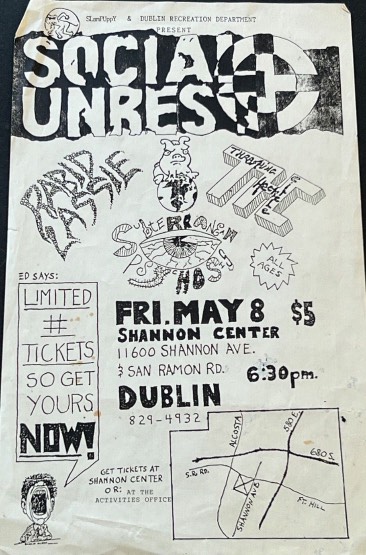 SLamPUppY & DUBLIN RECREATION DEPARTMENT
PRESENT
SOCIAL
UNREST
RABID
LASSIE
THRASHING
TIE
SUBTERRANEAN
ALL
AGES
ED SAYS:
LIMITED
#
TICKETS
SO GET
YOURS
NOW!
FRI. MAY 8 $5
SHANNON CENTER
11600 SHANNON AVE.
& SAN RAMON RD.
6:30pm.
DUBLIN
829-4932
GET TICKETS AT
SHANNON CENTER
OR: AT THE
ACTIVITIES OFFICE
ALCOSTA
580 E
680 S.
S.R. RD.
SHANNON AVE
FT. HILL